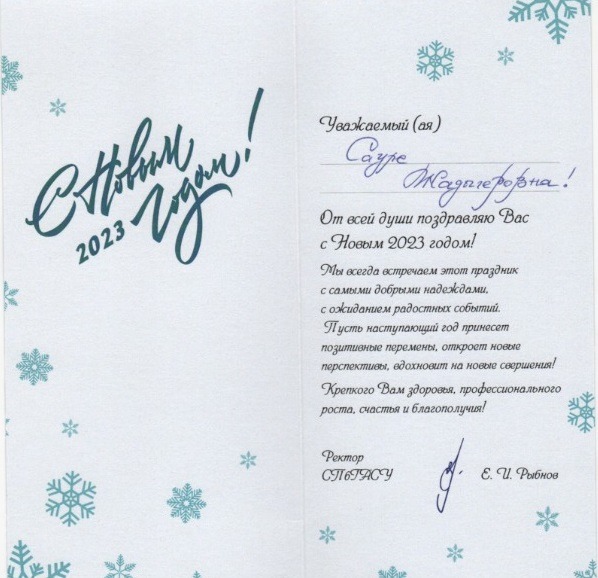 С Новым
2023 Годом!
Уважаемый (ая)
Сауре
Жадыгеровна!
От всей души поздравляю Вас
с Новым 2023 годом!
Мы всегда встречаем этот праздник
с самыми добрыми надеждами,
с ожиданием радостных событий.
Пусть наступающий год принесет
позитивные перемены, откроет новые
перспективы, вдохновит на новые свершения!
Крепкого Вам здоровья, профессионального
роста, счастья и благополучия!
Ректор
СПбГАСУ Е. И. Рыбнов